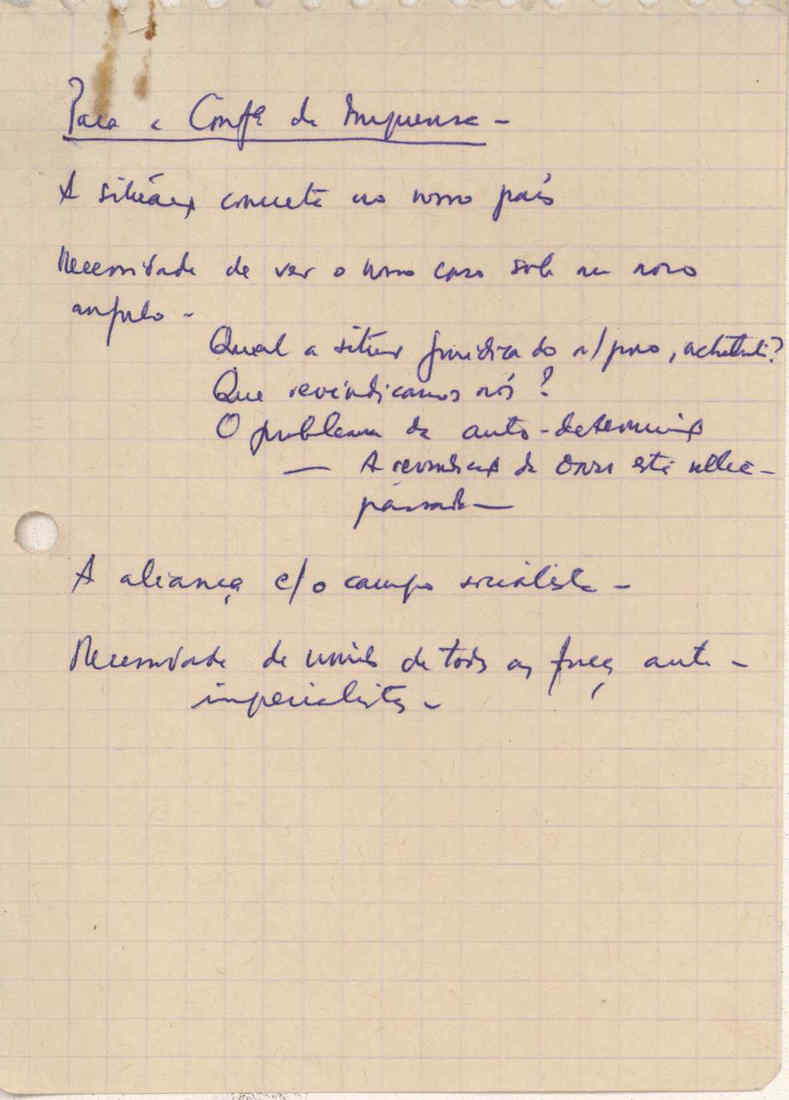 Para a Confª de Imprensa -
A situação concreta no nosso país
Necessidade de ver o nosso caso sob um novo
angulo -
Qual a situação jurídica do n/povo, actualmente?
Que reivindicamos nós?
O problema da auto-determinação
— A resolução da ONU está ultra-
passada —
A aliança c/o campo socialista -
Necessidade de união de todas as forças anti-
imperialistas -